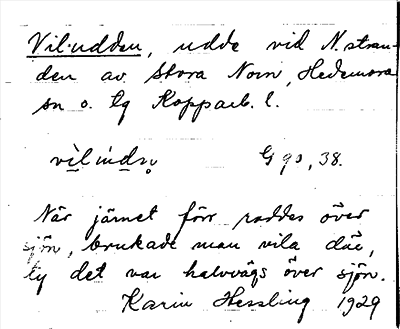 Vil-udden, udde vid N. stran-
den av Stora Norn, Hedemora
sn o. tg Kopparb. l.
G 90, 38.
När järnet förr roddes över
sjön, brukade man vila där,
ty det var halvvägs över sjön.
Karin Hessling 1929